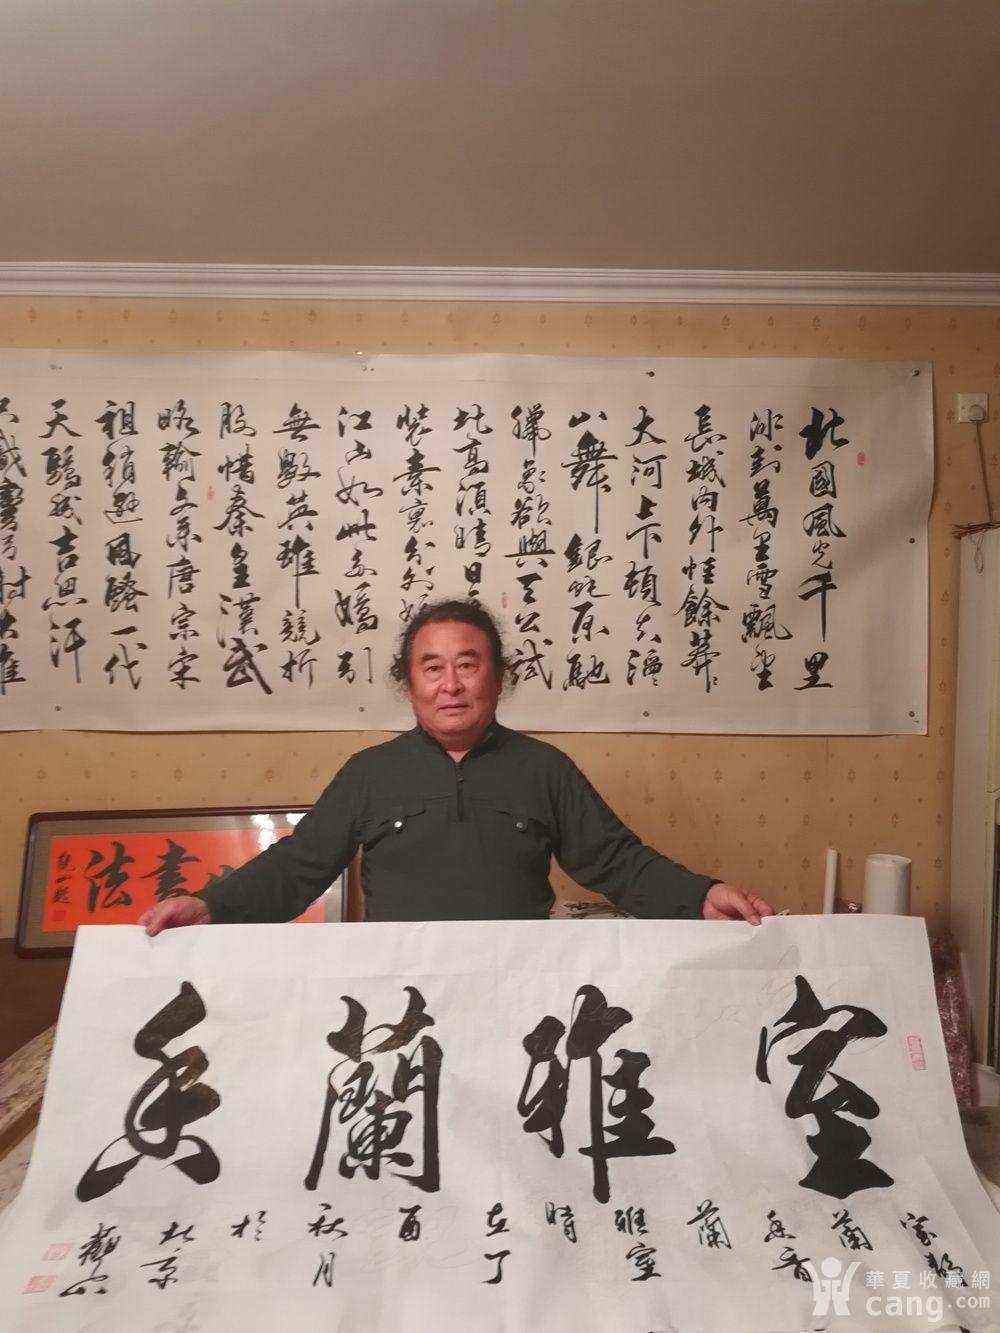 北國風光千里
冰封萬里雪飄望
長城內外惟餘莽〻
大河上下頓失滔〻
山舞銀蛇原馳
臘象欲與天公試
比高須晴日
裝素裹分外
江山如此多嬌引
無數英雄競折
腰惜秦皇漢武
略輸文采唐宗宋
祖稍遜風騷一代
天驕成吉思汗
只識彎弓射大雕
書法
觀山題
室雅蘭香
蘭
蘭
雅室
時
在丁
酉
秋月
於
北京
觀山
華夏收藏網
cang.com